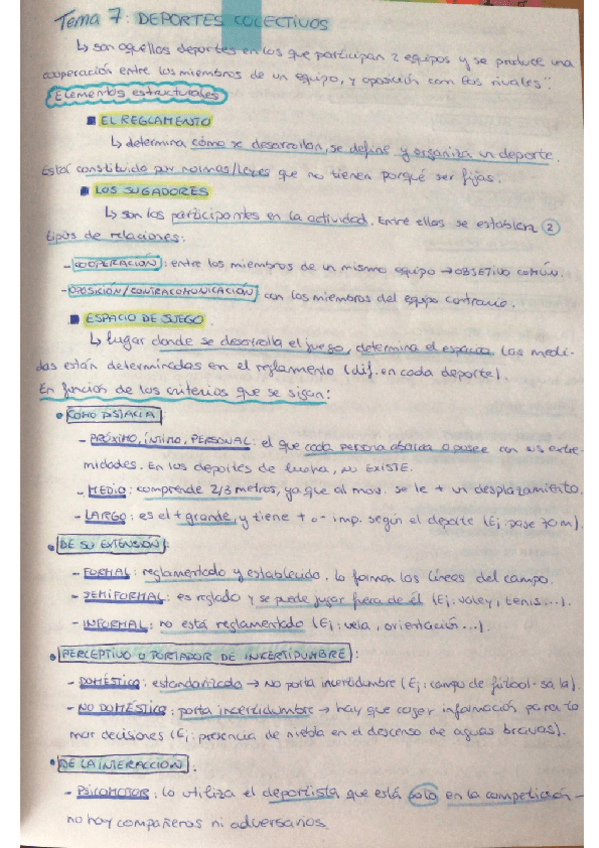 Tema 7: DEPORTES COLECTIVOS
↳ son aquellos deportes en los que participan 2 equipos y se produce una
cooperación entre los miembros de un equipo, y oposición con los rivales".
Elementos estructurales
■ EL REGLAMENTO
↳ determina cómo se desarrollan, se define y organiza un deporte.
Está constituido por normas/leyes que no tienen porqué ser fijas.
■ LOS JUGADORES
↳ son los participantes en la actividad. Entre ellos se establece 2
tipos de relaciones:
- COOPERACIÓN: entre los miembros de un mismo equipo → OBJETIVO COMÚN.
- OPOSICIÓN/CONTRACOMUNICACIÓN: con los miembros del equipo contrario.
■ ESPACIO DE JUEGO
↳ lugar donde se desarrolla el juego, determina el espacio. Las medi-
das están determinadas en el reglamento (dif. en cada deporte).
En función de los criterios que se sigan:
• COMO DISTANCIA:
- PRÓXIMO, ÍNTIMO, PERSONAL: el que cada persona aborda o posee con sus extre-
midades. En los deportes de lucha, NO EXISTE.
- MEDIO: comprende 2/3 metros, ya que al mov. se le + un desplazamiento.
- LARGO: es el + grande, y tiene + o - imp. según el deporte (Ej: pase 70 m).
• DE SU EXTENSIÓN:
- FORMAL: reglamentado y establecido. Lo forman las líneas del campo.
- SEMIFORMAL: es reglado y se puede jugar fuera de él (Ej. voley, tenis...).
- INFORMAL: no está reglamentado (Ej: vela, orientación...).
• PERCEPTIVO O PORTADOR DE INCERTIDUMBRE:
- DOMÉSTICO: estandarizado → No porta incertidumbre (Ej: campo de fútbol-sala).
- NO DOMÉSTICO: porta incertidumbre → hay que coger información para to
mar decisiones (Ej: presencia de niebla en el descenso de aguas bravas).
• DE LA INTERACCIÓN:
- PSICOMOTOR: lo utiliza el deportista que está solo en la competición -
no hay compañeros ni adversarios.